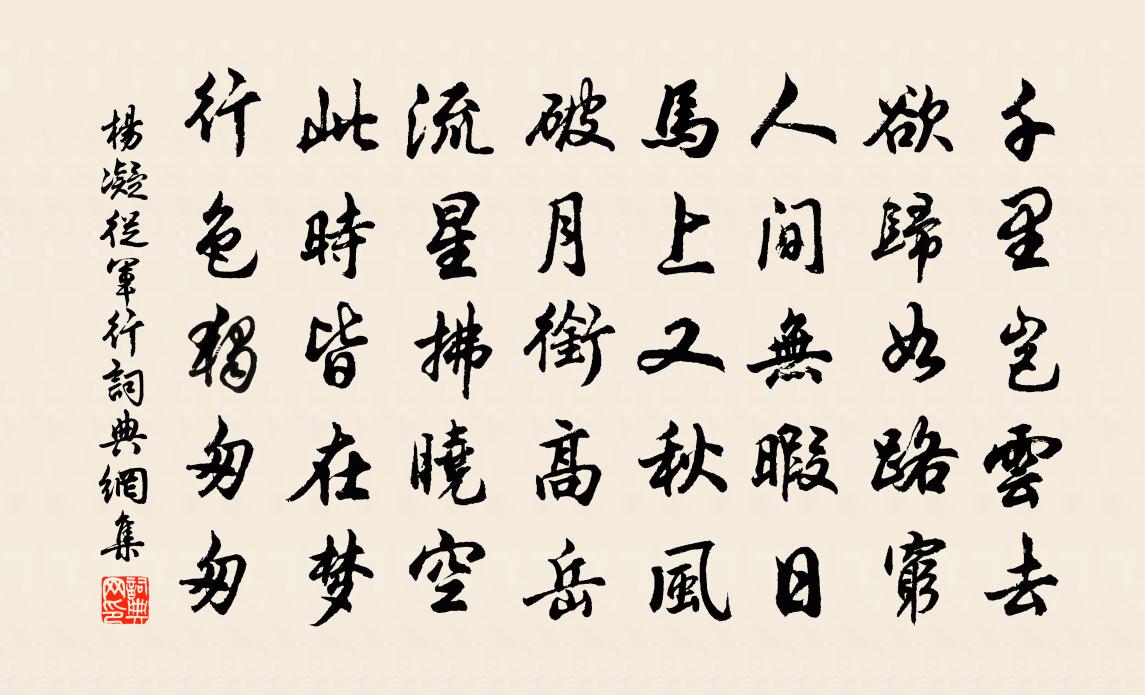 千里岂雲去
欲歸如路窮
人間無暇日
馬上又秋風
破月銜高岳
流星拂曉空
此時皆在梦
行色獨匆匆
楊凝從軍行詞典網集
詞典网印